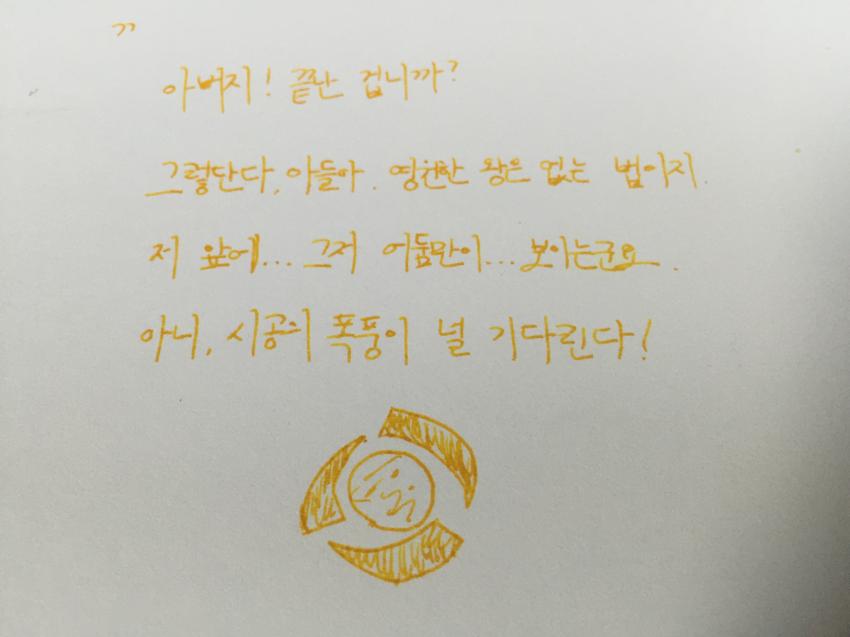 "
아버지! 끝난 겁니까?
그렇단다, 아들아. 영원한 왕은 없는 법이지.
저 앞에... 그저 어둠만이... 보이는군요.
아니, 시공의 폭풍이 널 기다린다!